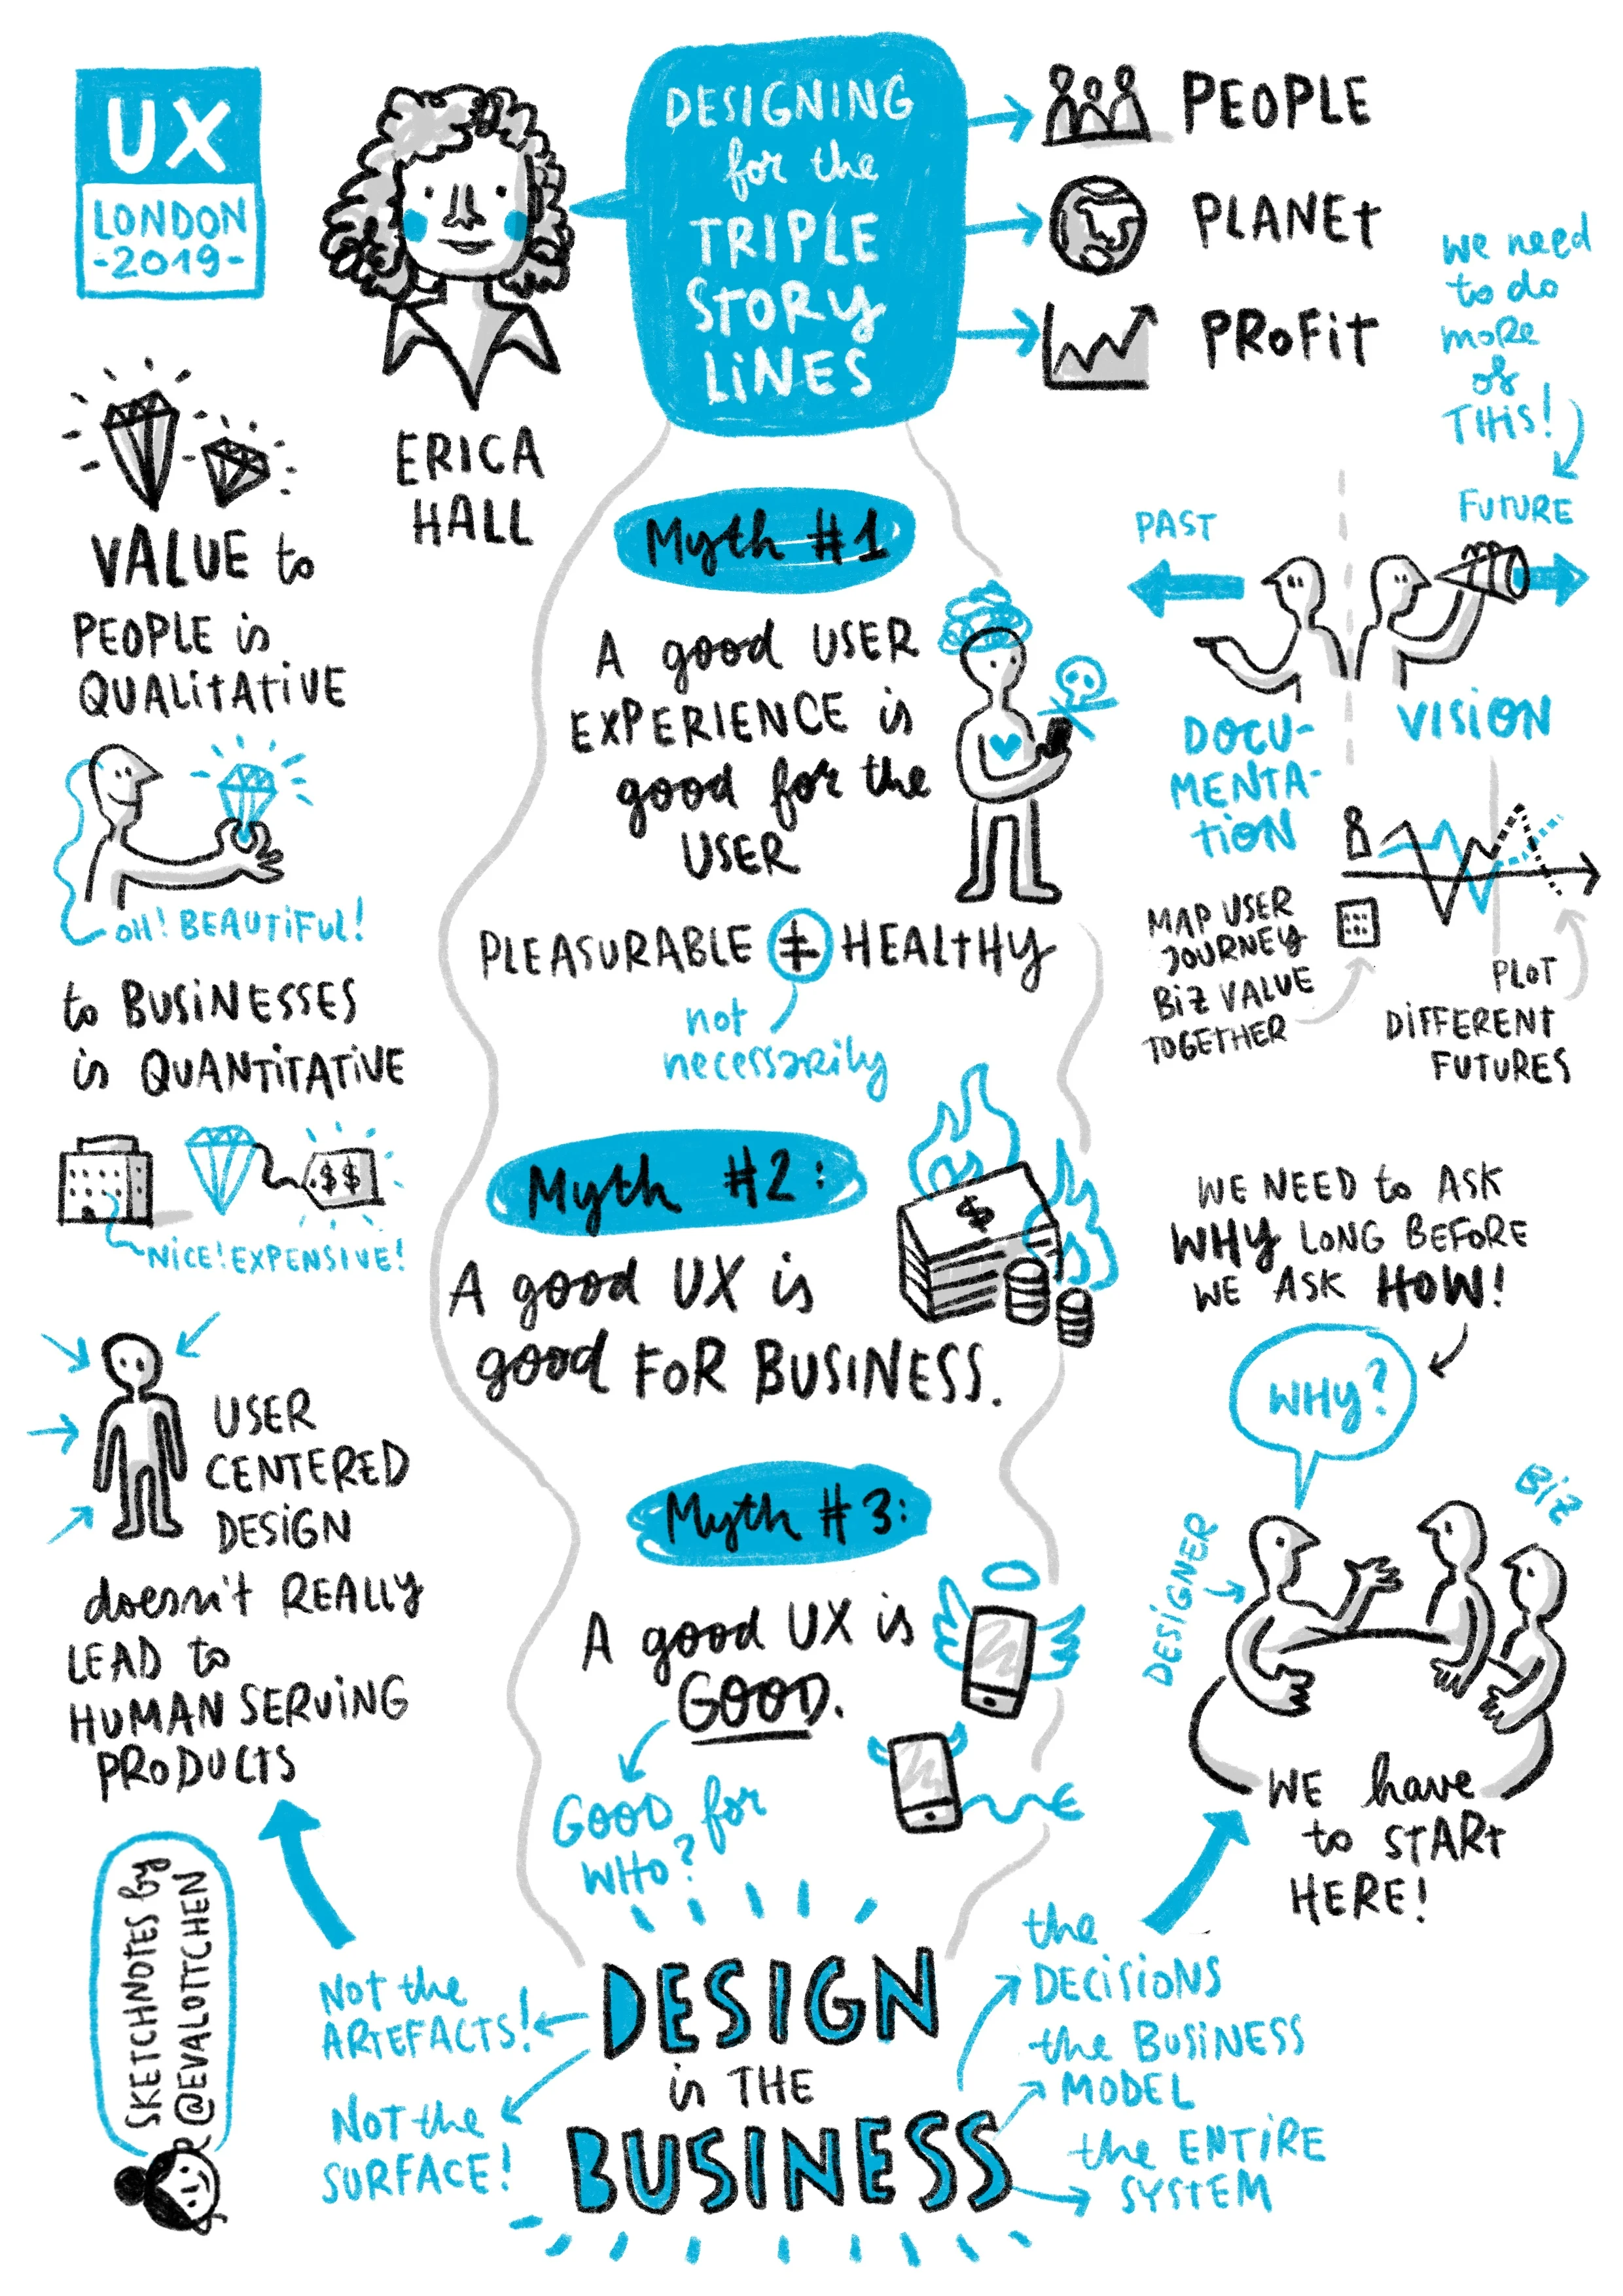 UX
LONDON
-2019-
ERICA
HALL
DESIGNING
for the
TRIPLE
STORY
LINES
PEOPLE
PLANET
PROFIT
we need
to do
more
of
THIS!
PAST
FUTURE
DOCU-
MENTA-
TION
VISION
MAP USER
JOURNEY
BIZ VALUE
TOGETHER
PLOT
DIFFERENT
FUTURES
VALUE to
PEOPLE is
QUALITATIVE
OH! BEAUTIFUL!
to BUSINESSES
is QUANTITATIVE
$$
NICE! EXPENSIVE!
USER
CENTERED
DESIGN
doesn't REALLY
LEAD to
HUMAN SERVING
PRODUCTS
Myth #1
A good USER
EXPERIENCE is
good for the
USER
PLEASURABLE ≠ HEALTHY
not
necessarily
Myth #2:
$
A good UX is
good FOR BUSINESS.
Myth #3:
A good UX is
GOOD.
GOOD for
WHO?
WE NEED to ASK
WHY LONG BEFORE
WE ASK HOW!
WHY?
DESIGNER
BIZ
WE have
to START
HERE!
DESIGN
is THE
BUSINESS
NOT the
ARTEFACTS!
NOT the
SURFACE!
the
DECISIONS
the BUSINESS
MODEL
the ENTIRE
SYSTEM
SKETCHNOTES by
@EVALOTTCHEN